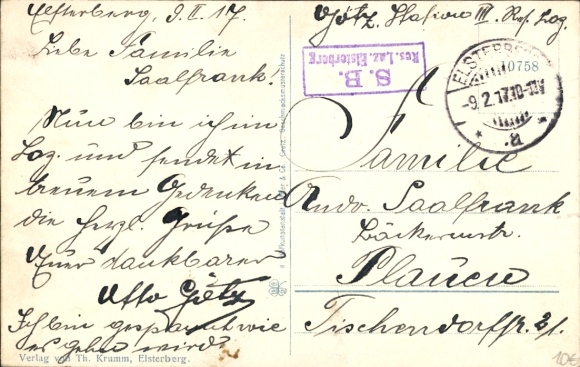 Elsterberg, 9.II.17.
Liebe Familie
Saalfrank!
Nun bin ich im
Laz. und sendet in
treuem Gedenken
die herzl. Grüße
Euer dankbarer
Otto Götz
Ich bin gespannt wie
es gehen wird?
Verlag von Th. Krumm, Elsterberg.
Götz. Station III. Res. Laz.
S. B.
Res. Laz. Elsterberg
ELSTERBERG
-9.2.17.10-11V.
* a *
10758
Familie
Andr. Saalfrank
Bäckermstr.
Plauen
Tischendorffstr. 21.
10€